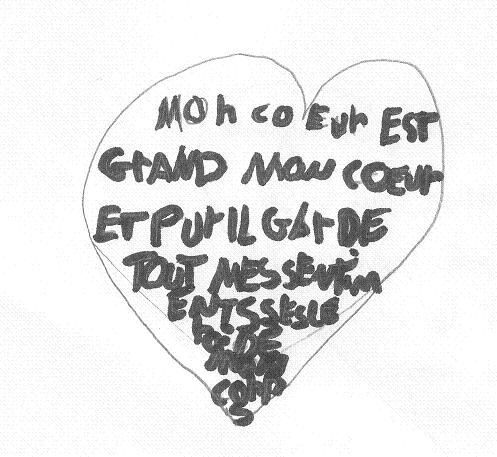 MON COEUR EST
GRAND MON COEUR
ET PUR IL GARDE
TOUT MES SENTIM
ENTS SES LE
DE
MON
CORP
S